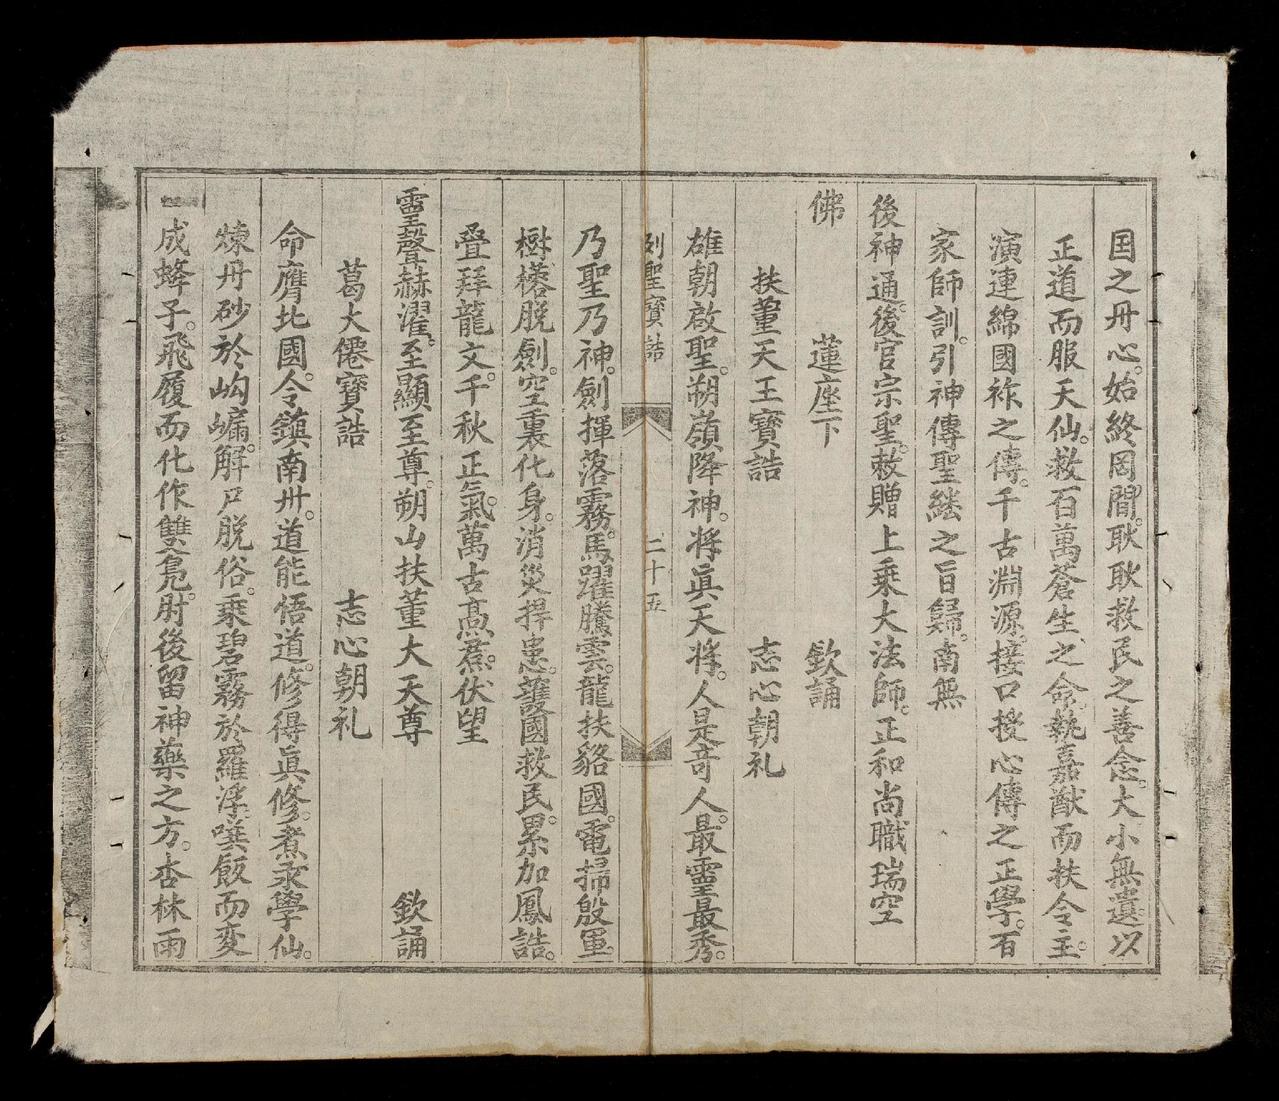 国之丹心。始終罔間。耿耿救民之善念。大小無遺。以
正道而服天仙。救百萬蒼生之命。執嘉猷而扶令主。
演連綿國祚之傳。千古淵源。接口授心傳之正學。百
家師訓。引神傳聖継之旨歸。南無
後神通。後官宗聖。敕贈上乗大法師。正和尚職瑞空
佛 蓮座下 欽誦
扶董天王寶誥 志心朝礼
雄朝啟聖。朔嶺降神。將眞天將。人是竒人。最靈最秀。
列聖寶誥 二十五
乃聖乃神。劍揮落霧。馬躍騰雲。龍扶貉國。電掃殷軍
樹榙脱劍。空裏化身。消災捍患。護國救民。累加鳳誥。
疊拜龍文。千秋正氣。萬古髙焄。伏望
靈聲赫濯。至顯至尊。朔山扶董大天尊 欽誦
葛大僊寶誥 志心朝礼
命膺北國。令鎮南卅。道能悟道。修得眞修。煮汞學仙。
煉丹砂於岣嶁。解尸脱俗。乘碧霧於羅浮。噀飯而変
成蜂子。飛履而化作雙鳧。肘後留神藥之方。杏林雨